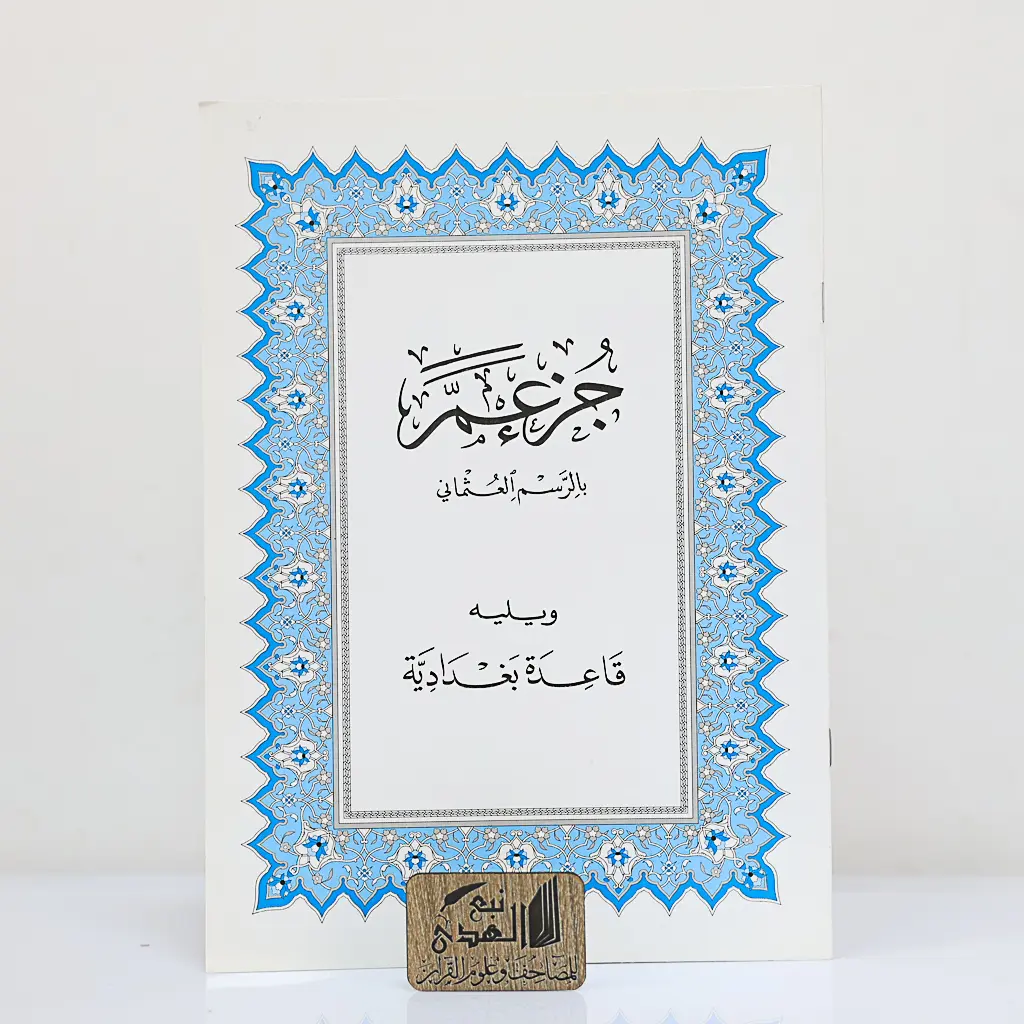 جُزْء عَمَّ
بِالرَّسْمِ ٱلعُثْمَاني
ويليه
قَاعِدَة بَغْدَادِيَّة
نبي الهدى
للمصاحف وعلوم القرآن